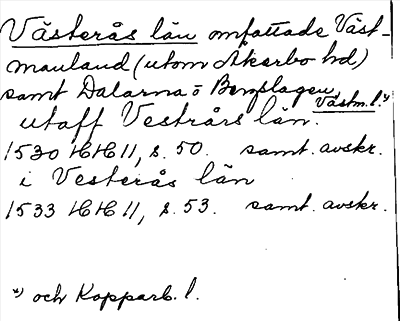 Västerås län omfattade Väst-
manland (utom Åkerbo hd)
samt Dalarna o Bergslagen,
Västm. l.*)
utaff Vestrårs län.
1530 HH 11, s. 50. samt. avskr.
i Vesterås län
1533 HH 11, s. 53. samt. avskr.
*) och Kopparb. l.